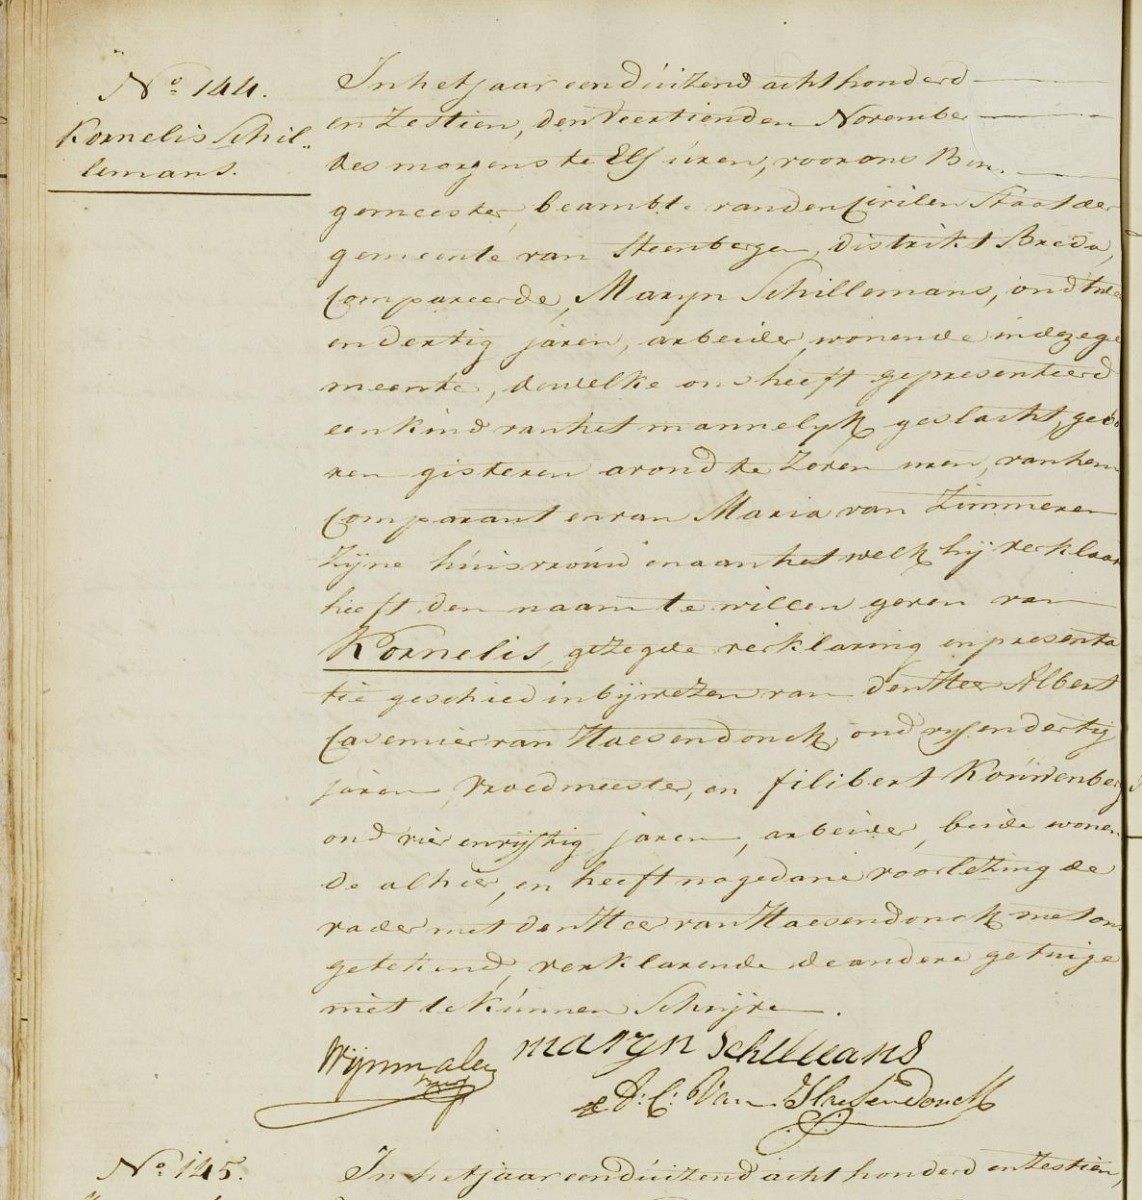 No. 144.
Kornelis Schil„
lemans.
In het jaar een duizend acht honderd
en Zestien, den Veertienden November
des morgens te Elf uren, voor ons Bur„
gemeester, beambte van den Civilen Staat der
gemeente van Steenbergen, distrikt Breda,
Compareerde, Maryn Schillemans, oud twee
en dertig jaren, arbeider, wonende in deze ge
meente, dewelke ons heeft gepresenteerd
een kind van het mannelyk geslacht, gebo
ren gisteren avond te Zeven uren, van hem
Comparant en van Maria van Zimmeren
Zijne huisvrouw en aan het welk hij verklaar
heeft den naam te willen geven van
Kornelis, gezegde verklaring en presenta
tie geschied in bijwezen van den Heer Albert
Casemier van Haesendonck, oud vyf en dertig
jaren, Vroedmeester, en filibert Kouwenberg
oud vier en vyftig jaren, arbeider, beide wonen
de alhier, en heeft na gedane voorlezing de
vader met den Heer van Haesendonck met ons
getekend, verklarende de andere getuige
niet te kunnen Schrijve.
Wijnmalen maryn Schillemans
A: C: Van Haesendonck
No. 145.
In het jaar een duizend acht honderd en Zestien,